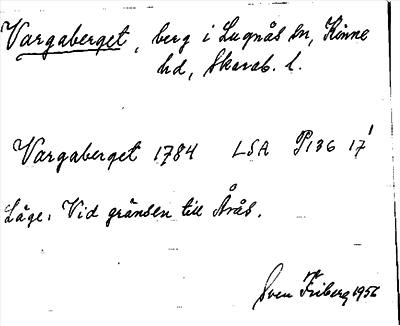 Vargaberget, berg i Lugnås sn, Kinne
hd, Skarab. l.
Vargaberget 1784 LSA P136 17¹
Läge: Vid gränsen till Årås.
Sven Friberg 1956